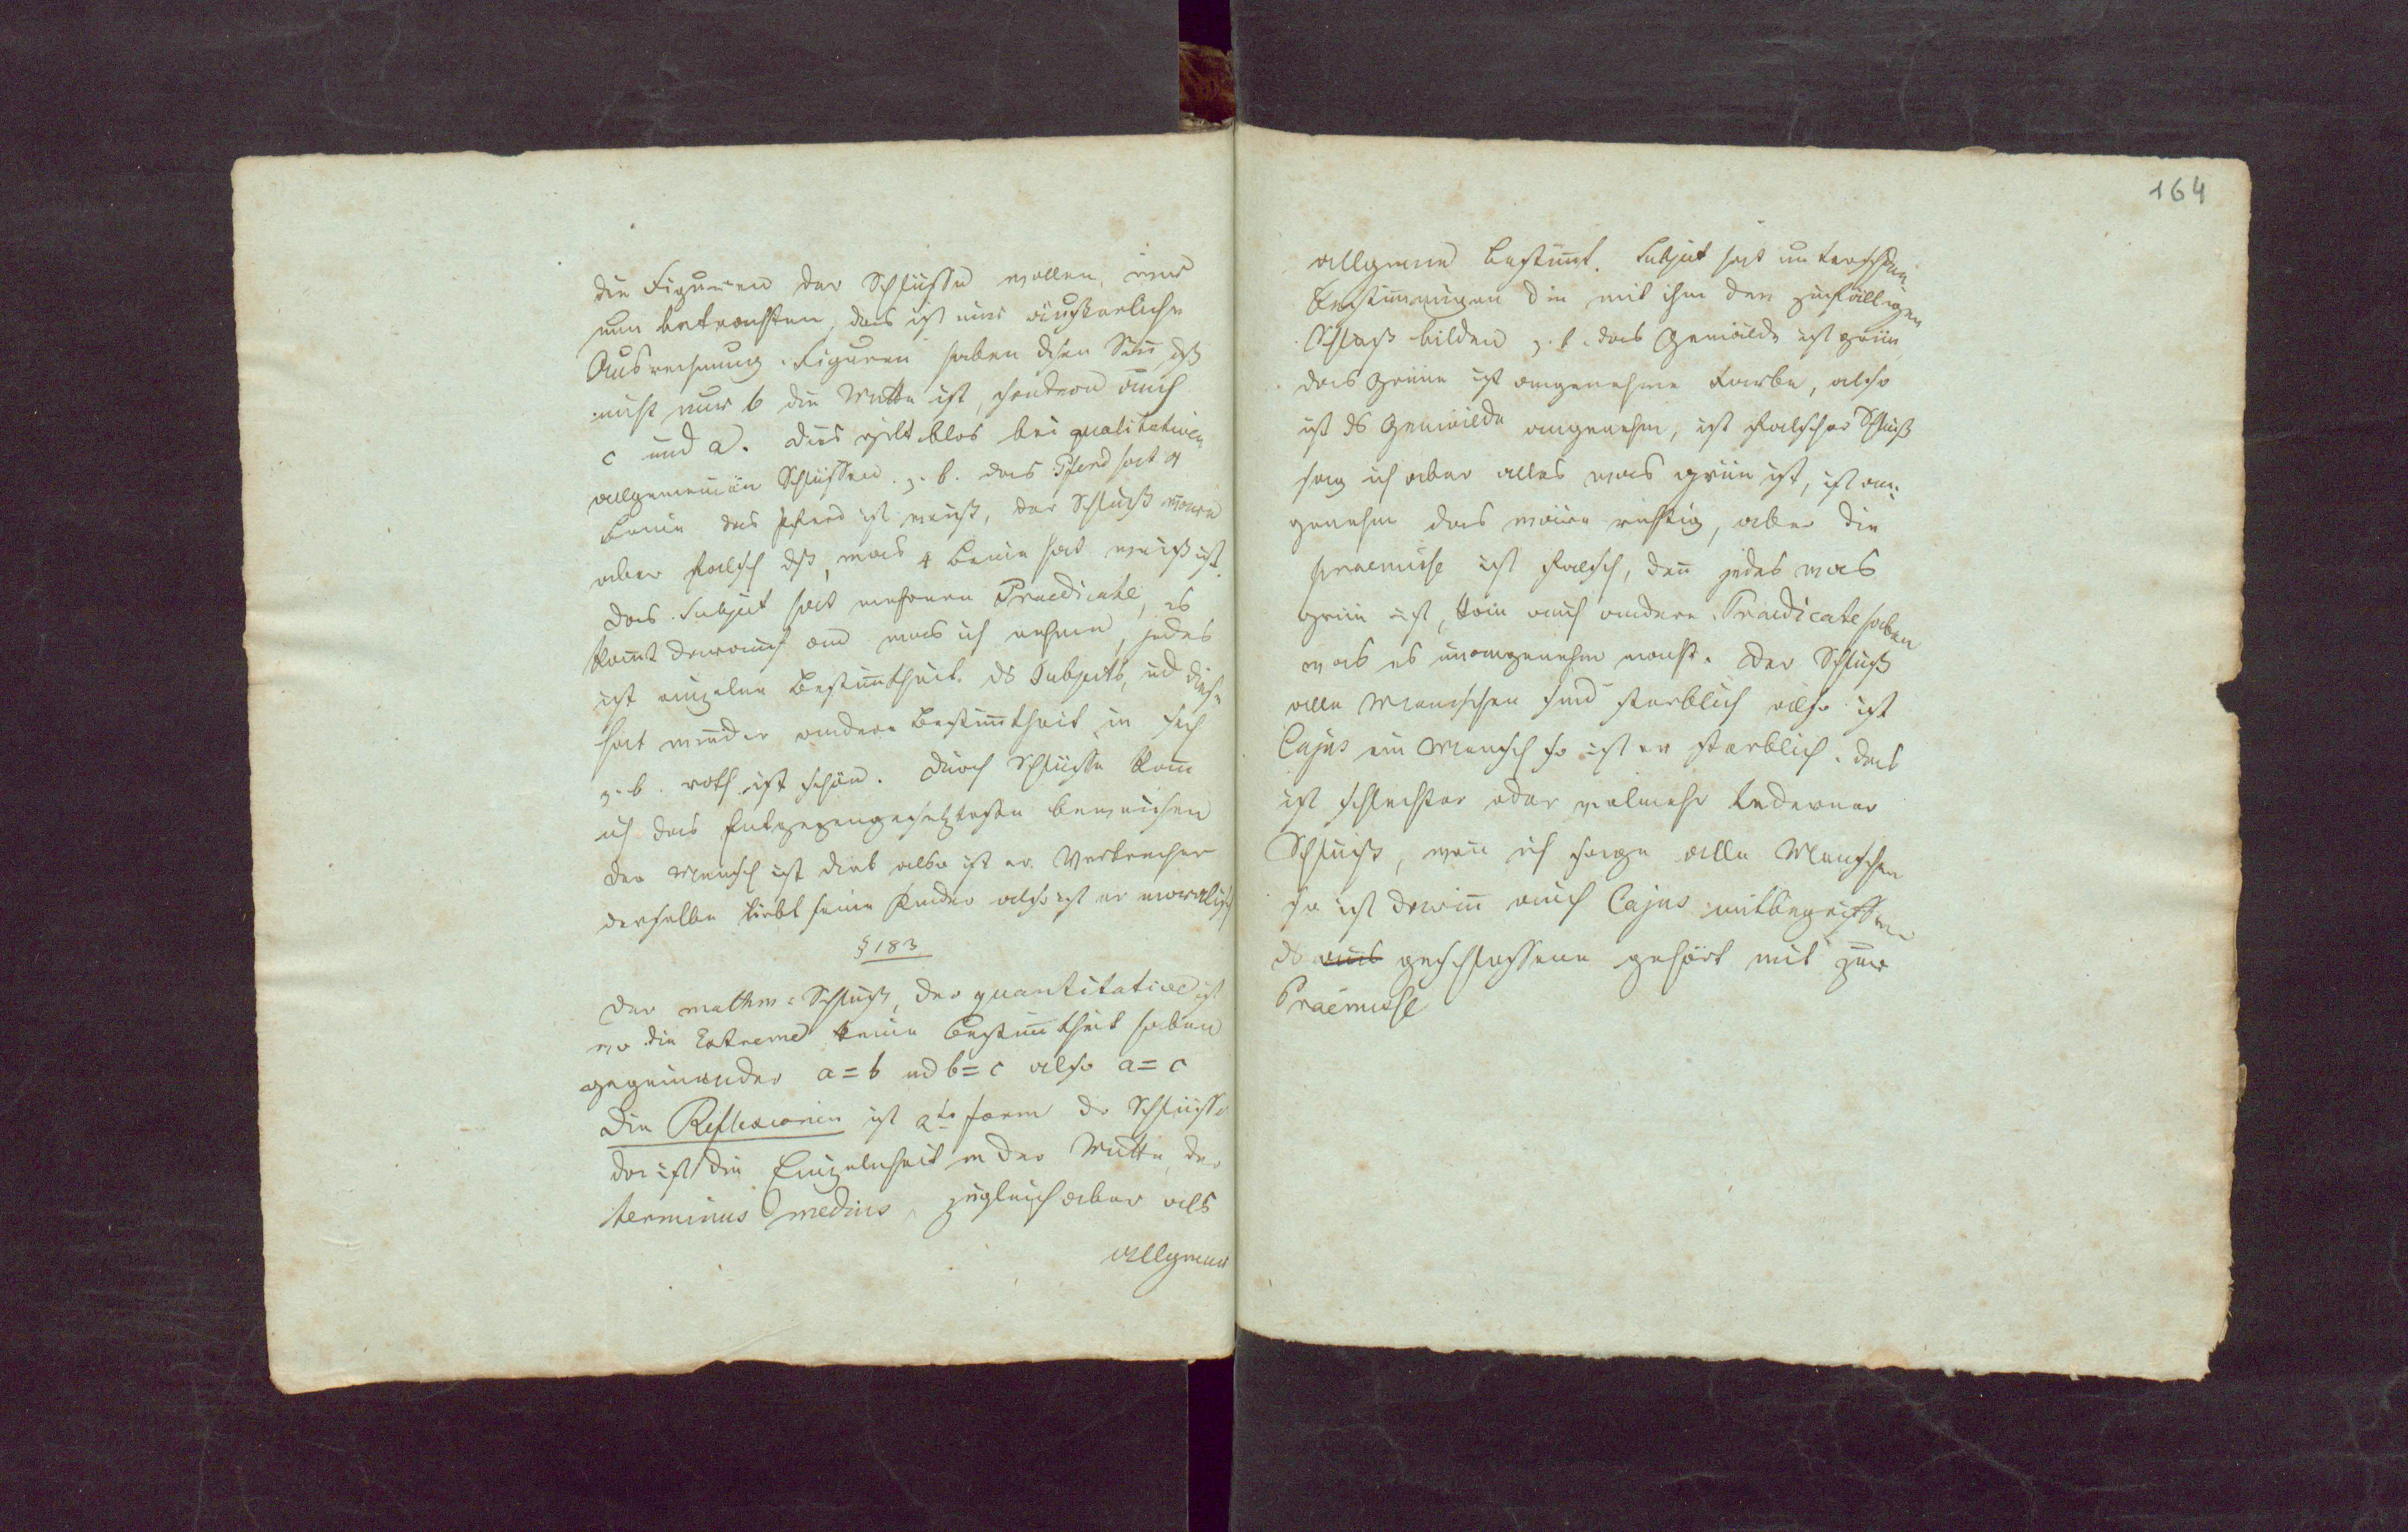 die Figuren der Schlüsse wollen wir
nun betrachten, das ist eine äußerliche
Ausrechnung. Figuren haben disen Sinn, dß
nicht nur b die Mitte ist, sondern auch
c und a. Dies gilt blos bei qualitativen
allgemeinen Schlüssen. z. b. das Pferd hat 4
Beine das Pferd ist weiß, der Schluß wäre
aber falsch dß, was 4 Beine hat weiß ist.
Das Subject hat mehrere Praedicate, es
kom̅t darauf an was ich nehme, jedes
ist einzelne Bestim̅theit ds Subjects, ud diese
hat wieder andere Bestim̅theit in sich
z. b. roth ist schön. Durch Schlüsse kan̅
ich das Entgegengesetzteste beweisen
der Mensch ist Dieb also ist er Verbrecher
derselbe liebt seine Kinder also ist er moralisch
§ 183
Der mathm: Schluß, der quantitative ist
wo die Extreme keine Bestim̅theit haben
gegeneinander a = b ud b = c also a = c
Die Reflexionen ist 2te Form dr Schlüsse
da ist die Einzelnheit in der Mitte, der
terminus medius, zugleich aber als
allgemein
164
allgemein bestim̅t. Subject hat unterschiedne
Bestim̅ungen die mit ihm den zufälligen
Schluß bilden z. b. das Gemälde ist grün,
das Grüne ist angenehme Farbe, also
ist ds Gemälde angenehm, ist falscher Schluß
sag ich aber alles was grün ist, ist an:
genehm das wäre richtig, aber die
praemisse ist falsch, den̅ jedes was
grün ist, kan auch andere Praedicate haben
was es unangenehm macht. Der Schluß
alle Menschen sind sterblich also ist
Cajus ein Mensch so ist er sterblich. das
ist schlechter oder vielmehr lederner
Schluß, wen̅ ich sage alle Menschen
so ist darin̅ auch Cajus mitbegriffen
ds aus geschlossene gehört mit zur
Praemisse